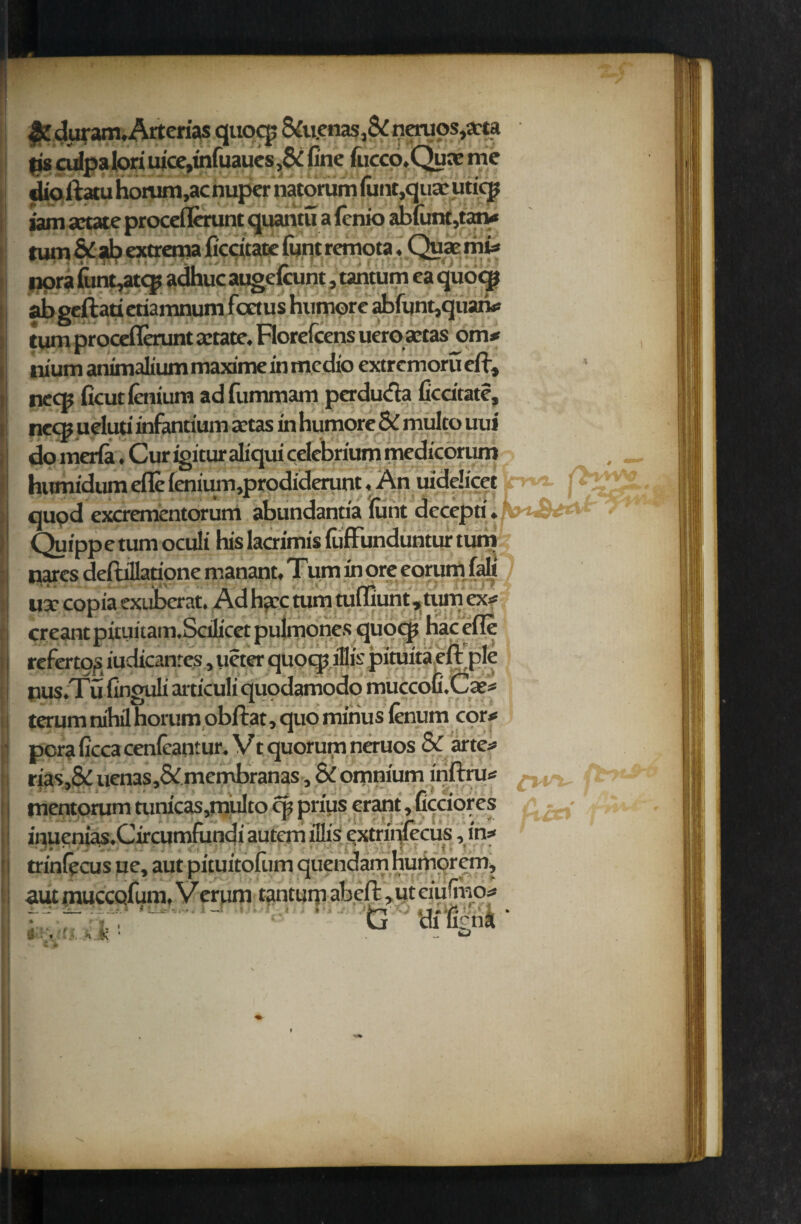 & duram. Arterias quoqꝫ & uenas, & neruos, æta
tis culpa lori uice, insuaues, & sine succo. Quæ me
dio statu horum, ac nuper natorum sunt, quæ utiqꝫ
iam ætate processerunt quantũ a senio absunt, tan⸗
tum & ab extrema siccitate sunt remota. Quæ mi⸗
nora sunt, atqꝫ adhuc augescunt, tantum ea quoqꝫ
ab gestati etiamnum fœtus humore absunt, quan⸗
tum processerunt ætate. Florescens uero ætas om⸗
nium animalium maxime in medio extremorũ est,
neqꝫ sicut senium ad summam perducta siccitatē,
neqꝫ ueluti infantium ætas in humore & multo uui
do mersa. Cur igitur aliqui celebrium medicorum
humidum esse senium, prodiderunt. An uidelicet
quod excrementorum abundantia sunt decepti.
Quippe tum oculi his lacrimis suffunduntur tum
nares destillatione manant. Tum in ore eorum sali
uæ copia exuberat. Ad hæc tum tussiunt, tum ex⸗
creant pituitam. Scilicet pulmones quoqꝫ hac esse
refertos iudicantes, uēter quoqꝫ illis pituita est ple
nus. Tũ singuli articuli quodamodo muccosi. Cæ⸗
terum nihil horum obstat, quo minus senum cor⸗
pora sicca censeantur. Vt quorum neruos & arte⸗
rias, & uenas, & membranas, & omnium instru⸗
mentorum tunicas, multo qꝫ prius erant, sicciores
inuenias. Circumfundi autem illis extrinsecus, in⸗
trinsecus ue, aut pituitosum quendam humorem,
aut muccosum. Verum tantum abest, ut eiusmo⸗
G di signa